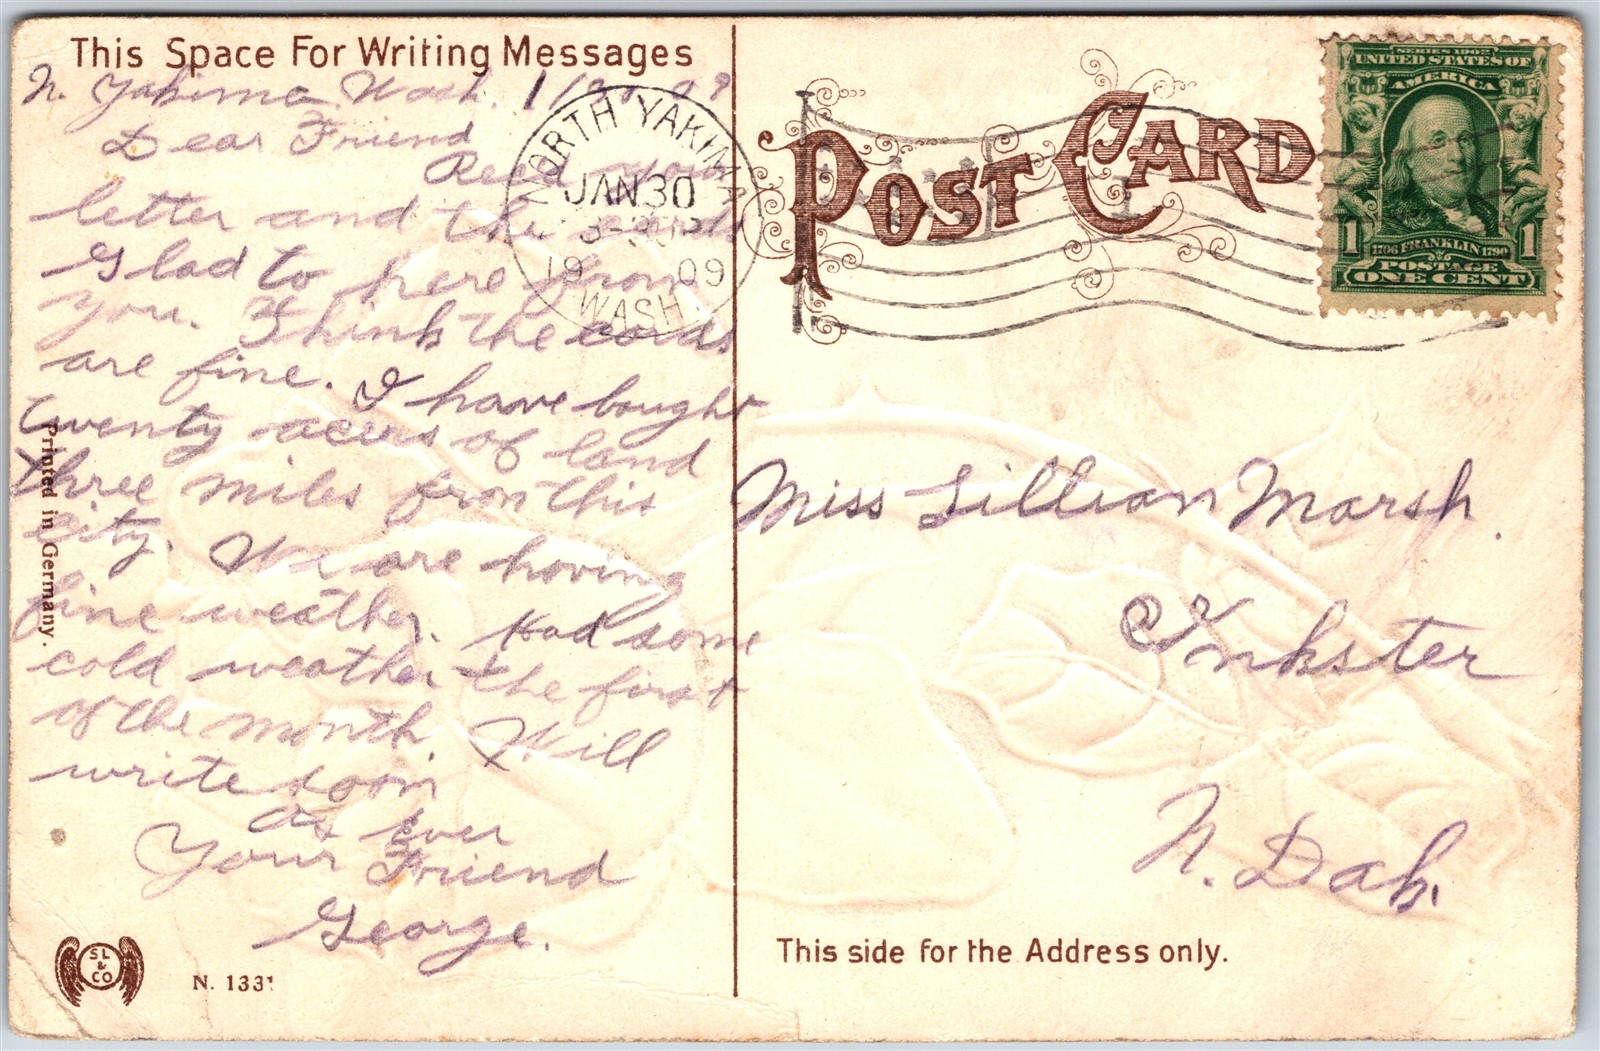 This Space For Writing Messages
N. Yakima Wash. 1/30 09
Dear Friend
Recd your
letter and the cards
Glad to here from
you. Think the cards
are fine. I have bought
twenty acers of land
three miles from this
city. We are having
fine weather. Had some
cold weather the first
of the month. Will
write soon
as ever
Your Friend
George.
Printed in Germany.
SL
&
CO
N. 1331
NORTH YAKIMA
JAN 30
19 09
WASH.
POST CARD
SERIES 1902
UNITED STATES OF
AMERICA
1 1706 FRANKLIN 1790 1
POSTAGE
ONE CENT
Miss Lillian Marsh.
Inkster
N. Dak.
This side for the Address only.